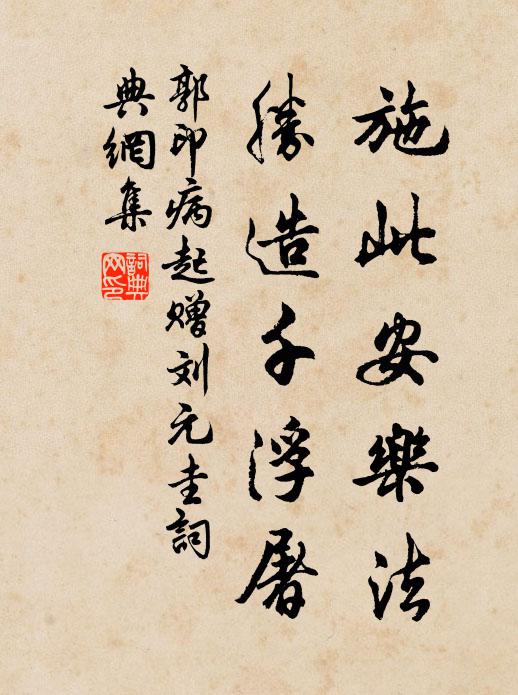 施此安樂法
勝造千浮屠
郭印病起赠刘元圭詞
典網集
詞典网印